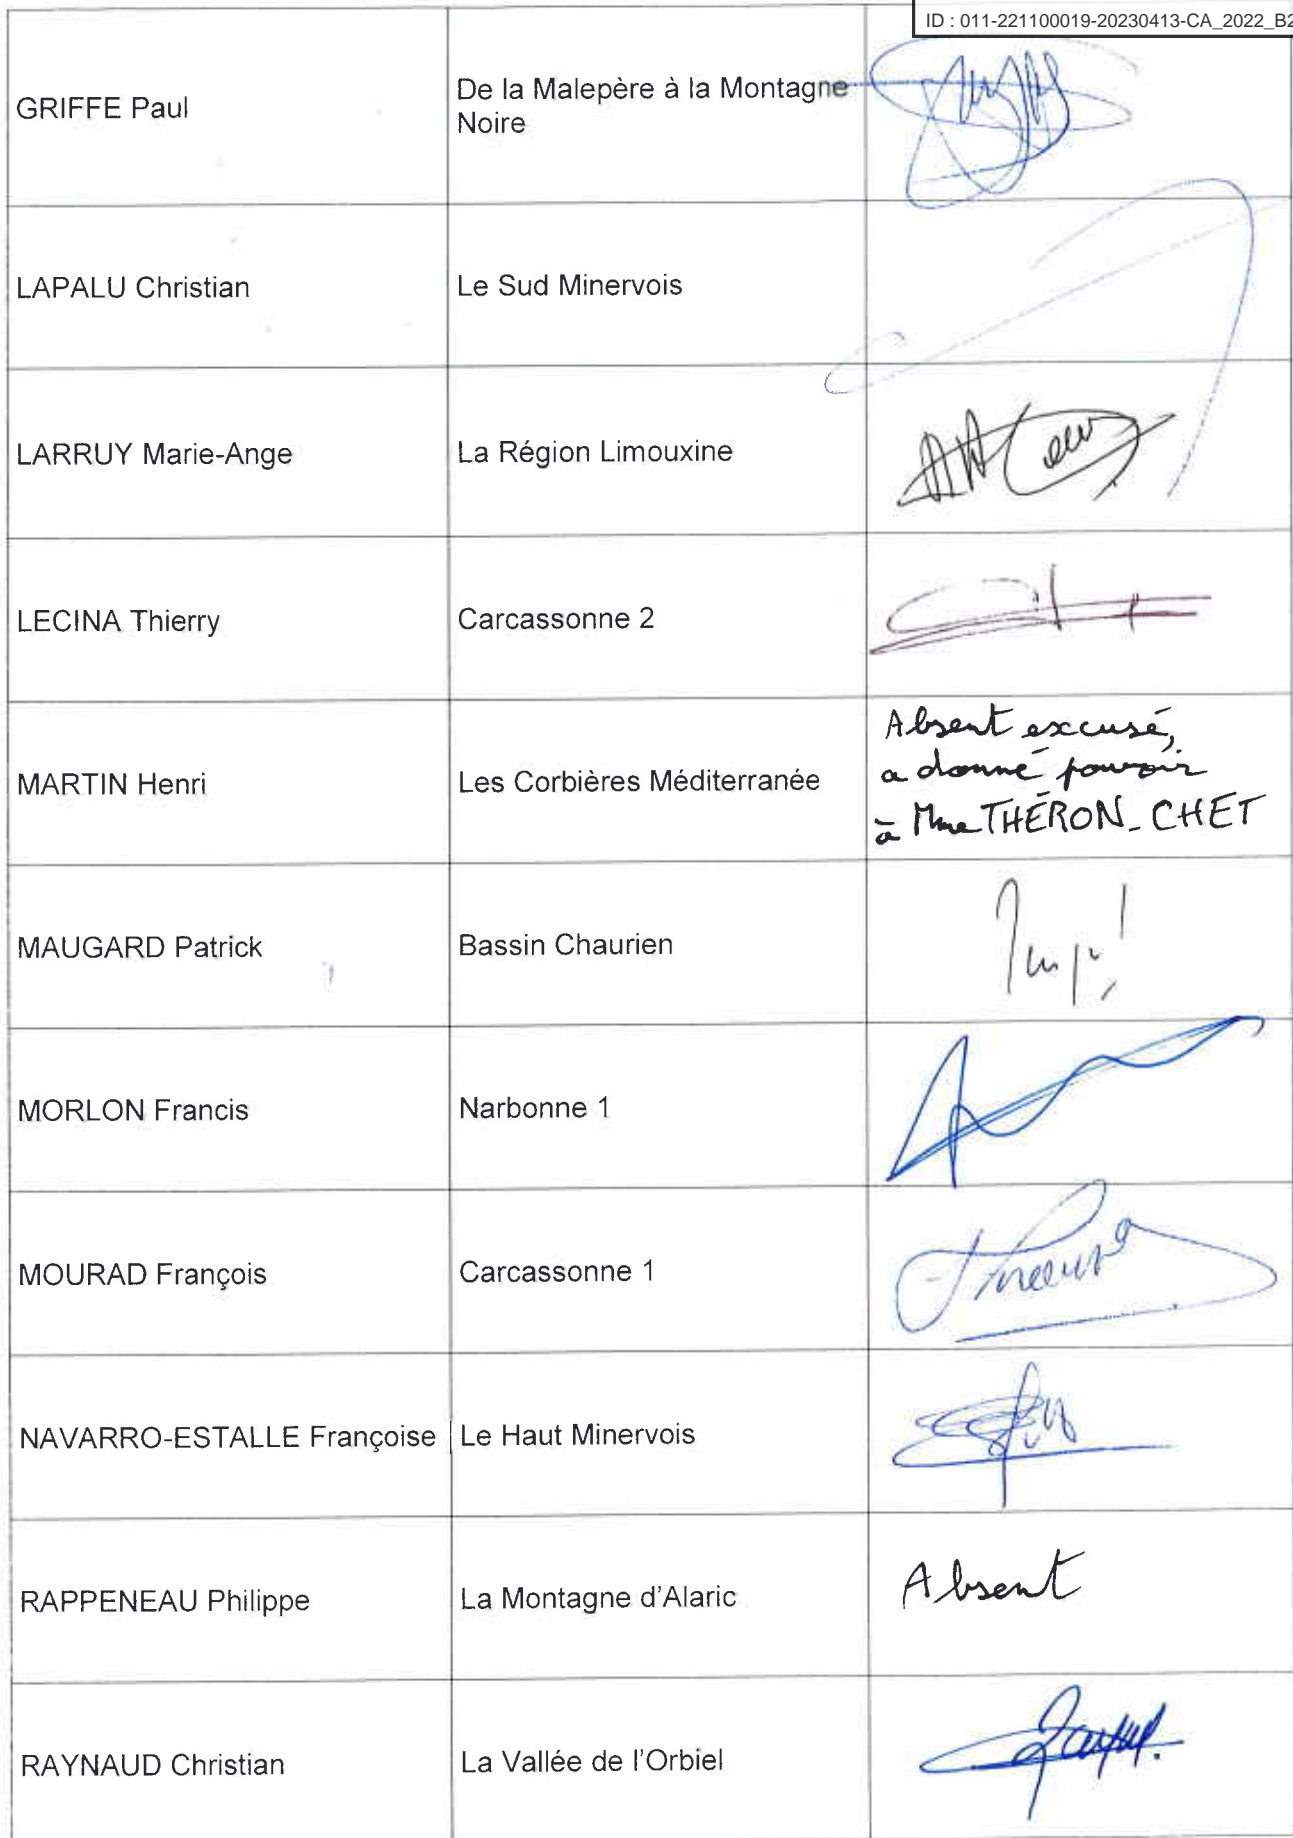 ID : 011-221100019-20230413-CA_2022_B2
GRIFFE Paul
De la Malepère à la Montagne
Noire
LAPALU Christian
Le Sud Minervois
LARRUY Marie-Ange
La Région Limouxine
LECINA Thierry
Carcassonne 2
MARTIN Henri
Les Corbières Méditerranée
Absent excusé,
a donné pouvoir
à Mme THÉRON-CHET
MAUGARD Patrick
Bassin Chaurien
MORLON Francis
Narbonne 1
MOURAD François
Carcassonne 1
NAVARRO-ESTALLE Françoise
Le Haut Minervois
RAPPENEAU Philippe
La Montagne d'Alaric
Absent
RAYNAUD Christian
La Vallée de l'Orbiel